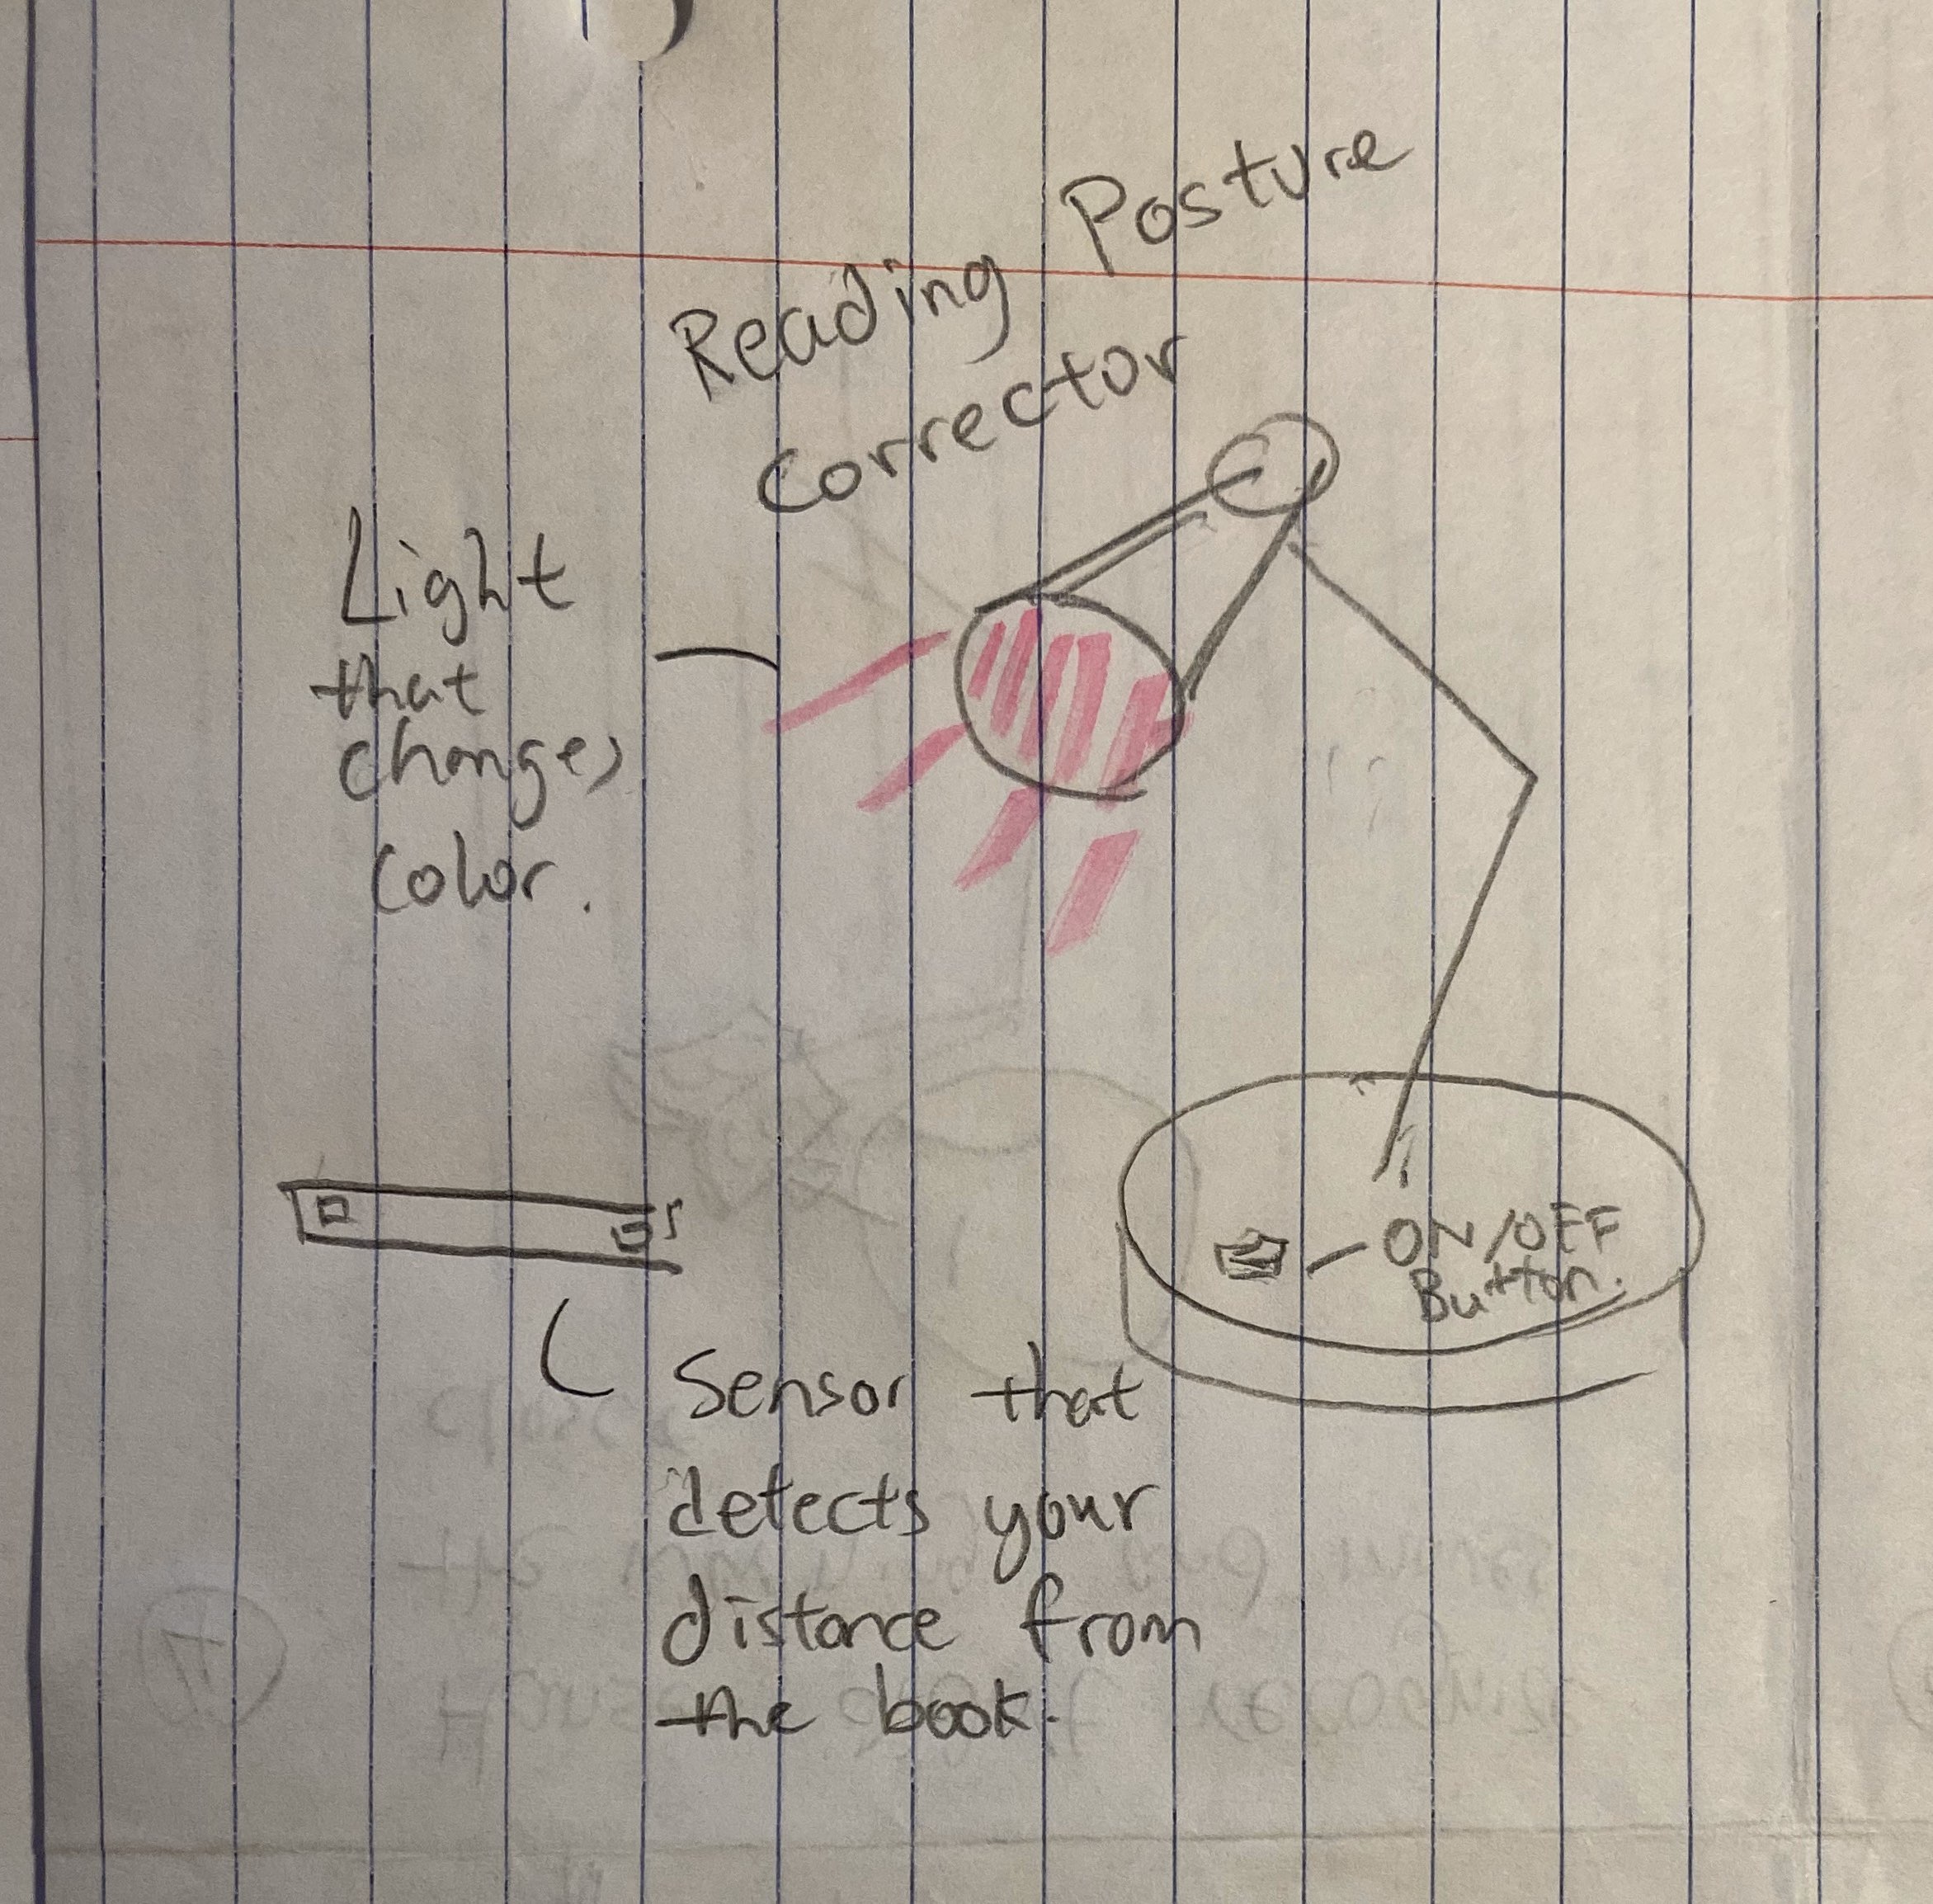 Reading Posture
Corrector
Light
that
changes
color.
ON/OFF
Button.
Sensor that
detects your
distance from
the book.